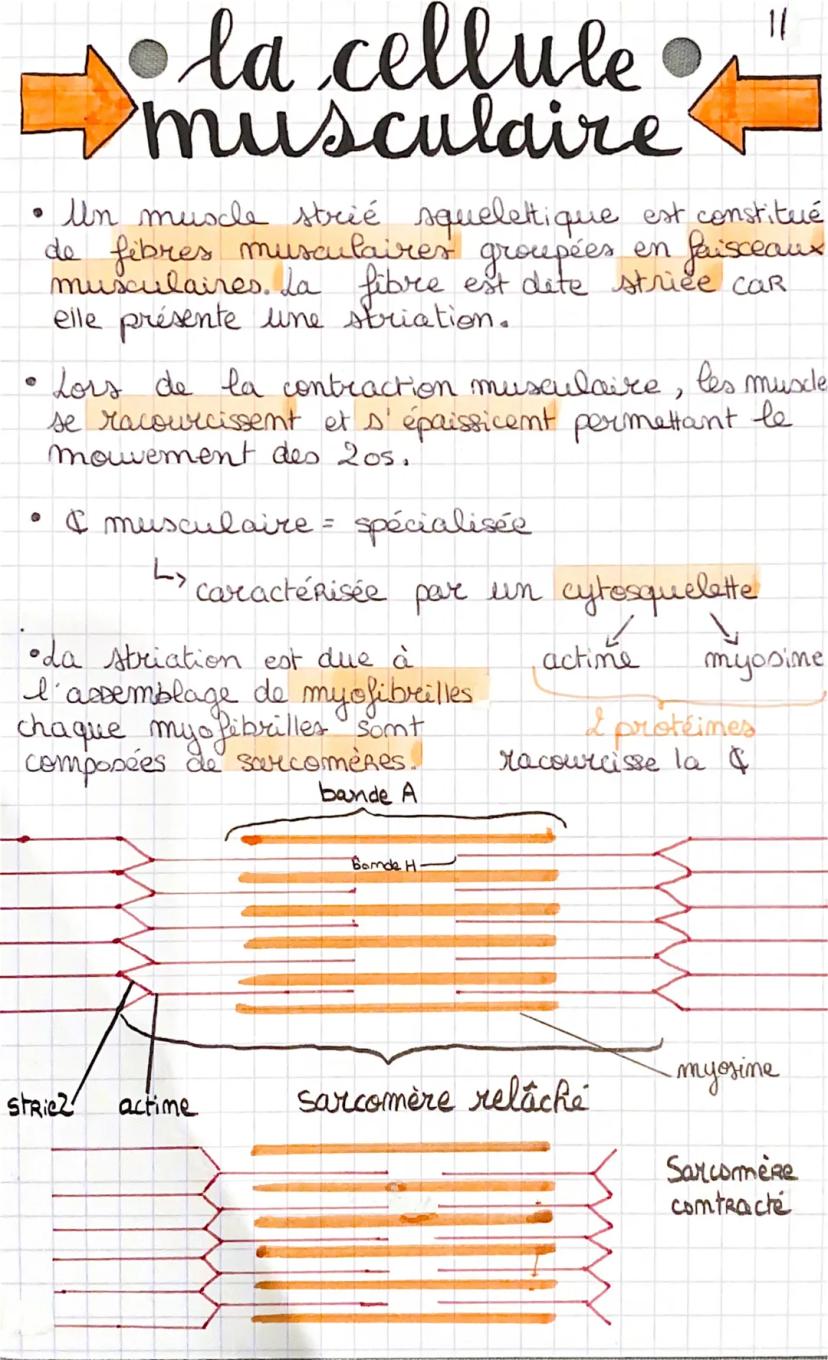 11
la cellule
musculaire
• Un muscle strié squelettique est constitué
de fibres musculaires groupées en faisceaux
musculaires. La fibre est dite striée car
elle présente une striation.
• Lors de la contraction musculaire, les muscle
se racourcissent et s'épaissicent permettant le
mouvement des 2os.
• ₵ musculaire = spécialisée
↳ caractérisée par un cytosquelette
actine myosine
2 protéines
racourcisse la ₵
• La striation est due à
l'assemblage de myofibrilles
chaque myofibrilles sont
composées de sarcomères.
bande A
Bande H
myosine
strieZ actine sarcomère relâché
Sarcomère
contracté